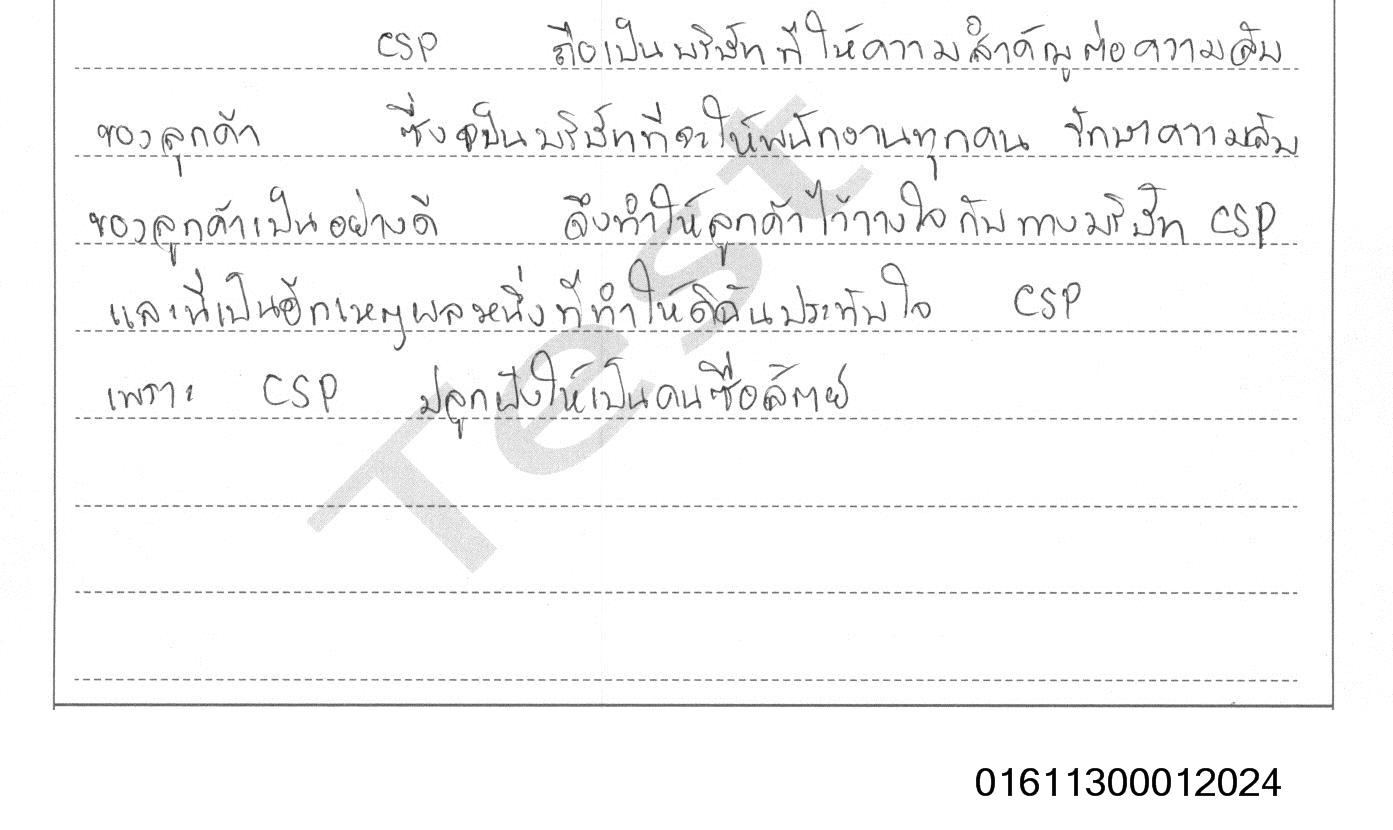 CSP ถือเป็นบริษัทที่ให้ความสำคัญต่อความลับ
ของลูกค้า ซึ่งเป็นบริษัทที่จะให้พนักงานทุกคน รักษาความลับ
ของลูกค้าเป็นอย่างดี จึงทำให้ลูกค้าไว้วางใจกับทางบริษัท CSP
และนี่เป็นอีกเหตุผลหนึ่งที่ทำให้ดิฉันประทับใจ CSP
เพราะ CSP ปลูกฝังให้เป็นคนซื่อสัตย์
Test
01611300012024